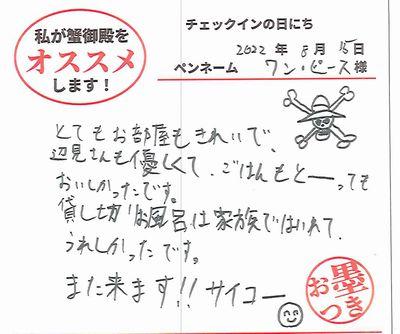 私が蟹御殿を
オススメ
します！
チェックインの日にち
2022年8月15日
ペンネーム ワン・ピース様
とてもお部屋もきれいで、
辺見さんも優しくて、ごはんもとーっても
おいしかったです。
貸し切りお風呂は家族ではいれて
うれしかったです。
また来ます!! サイコー
お墨つき